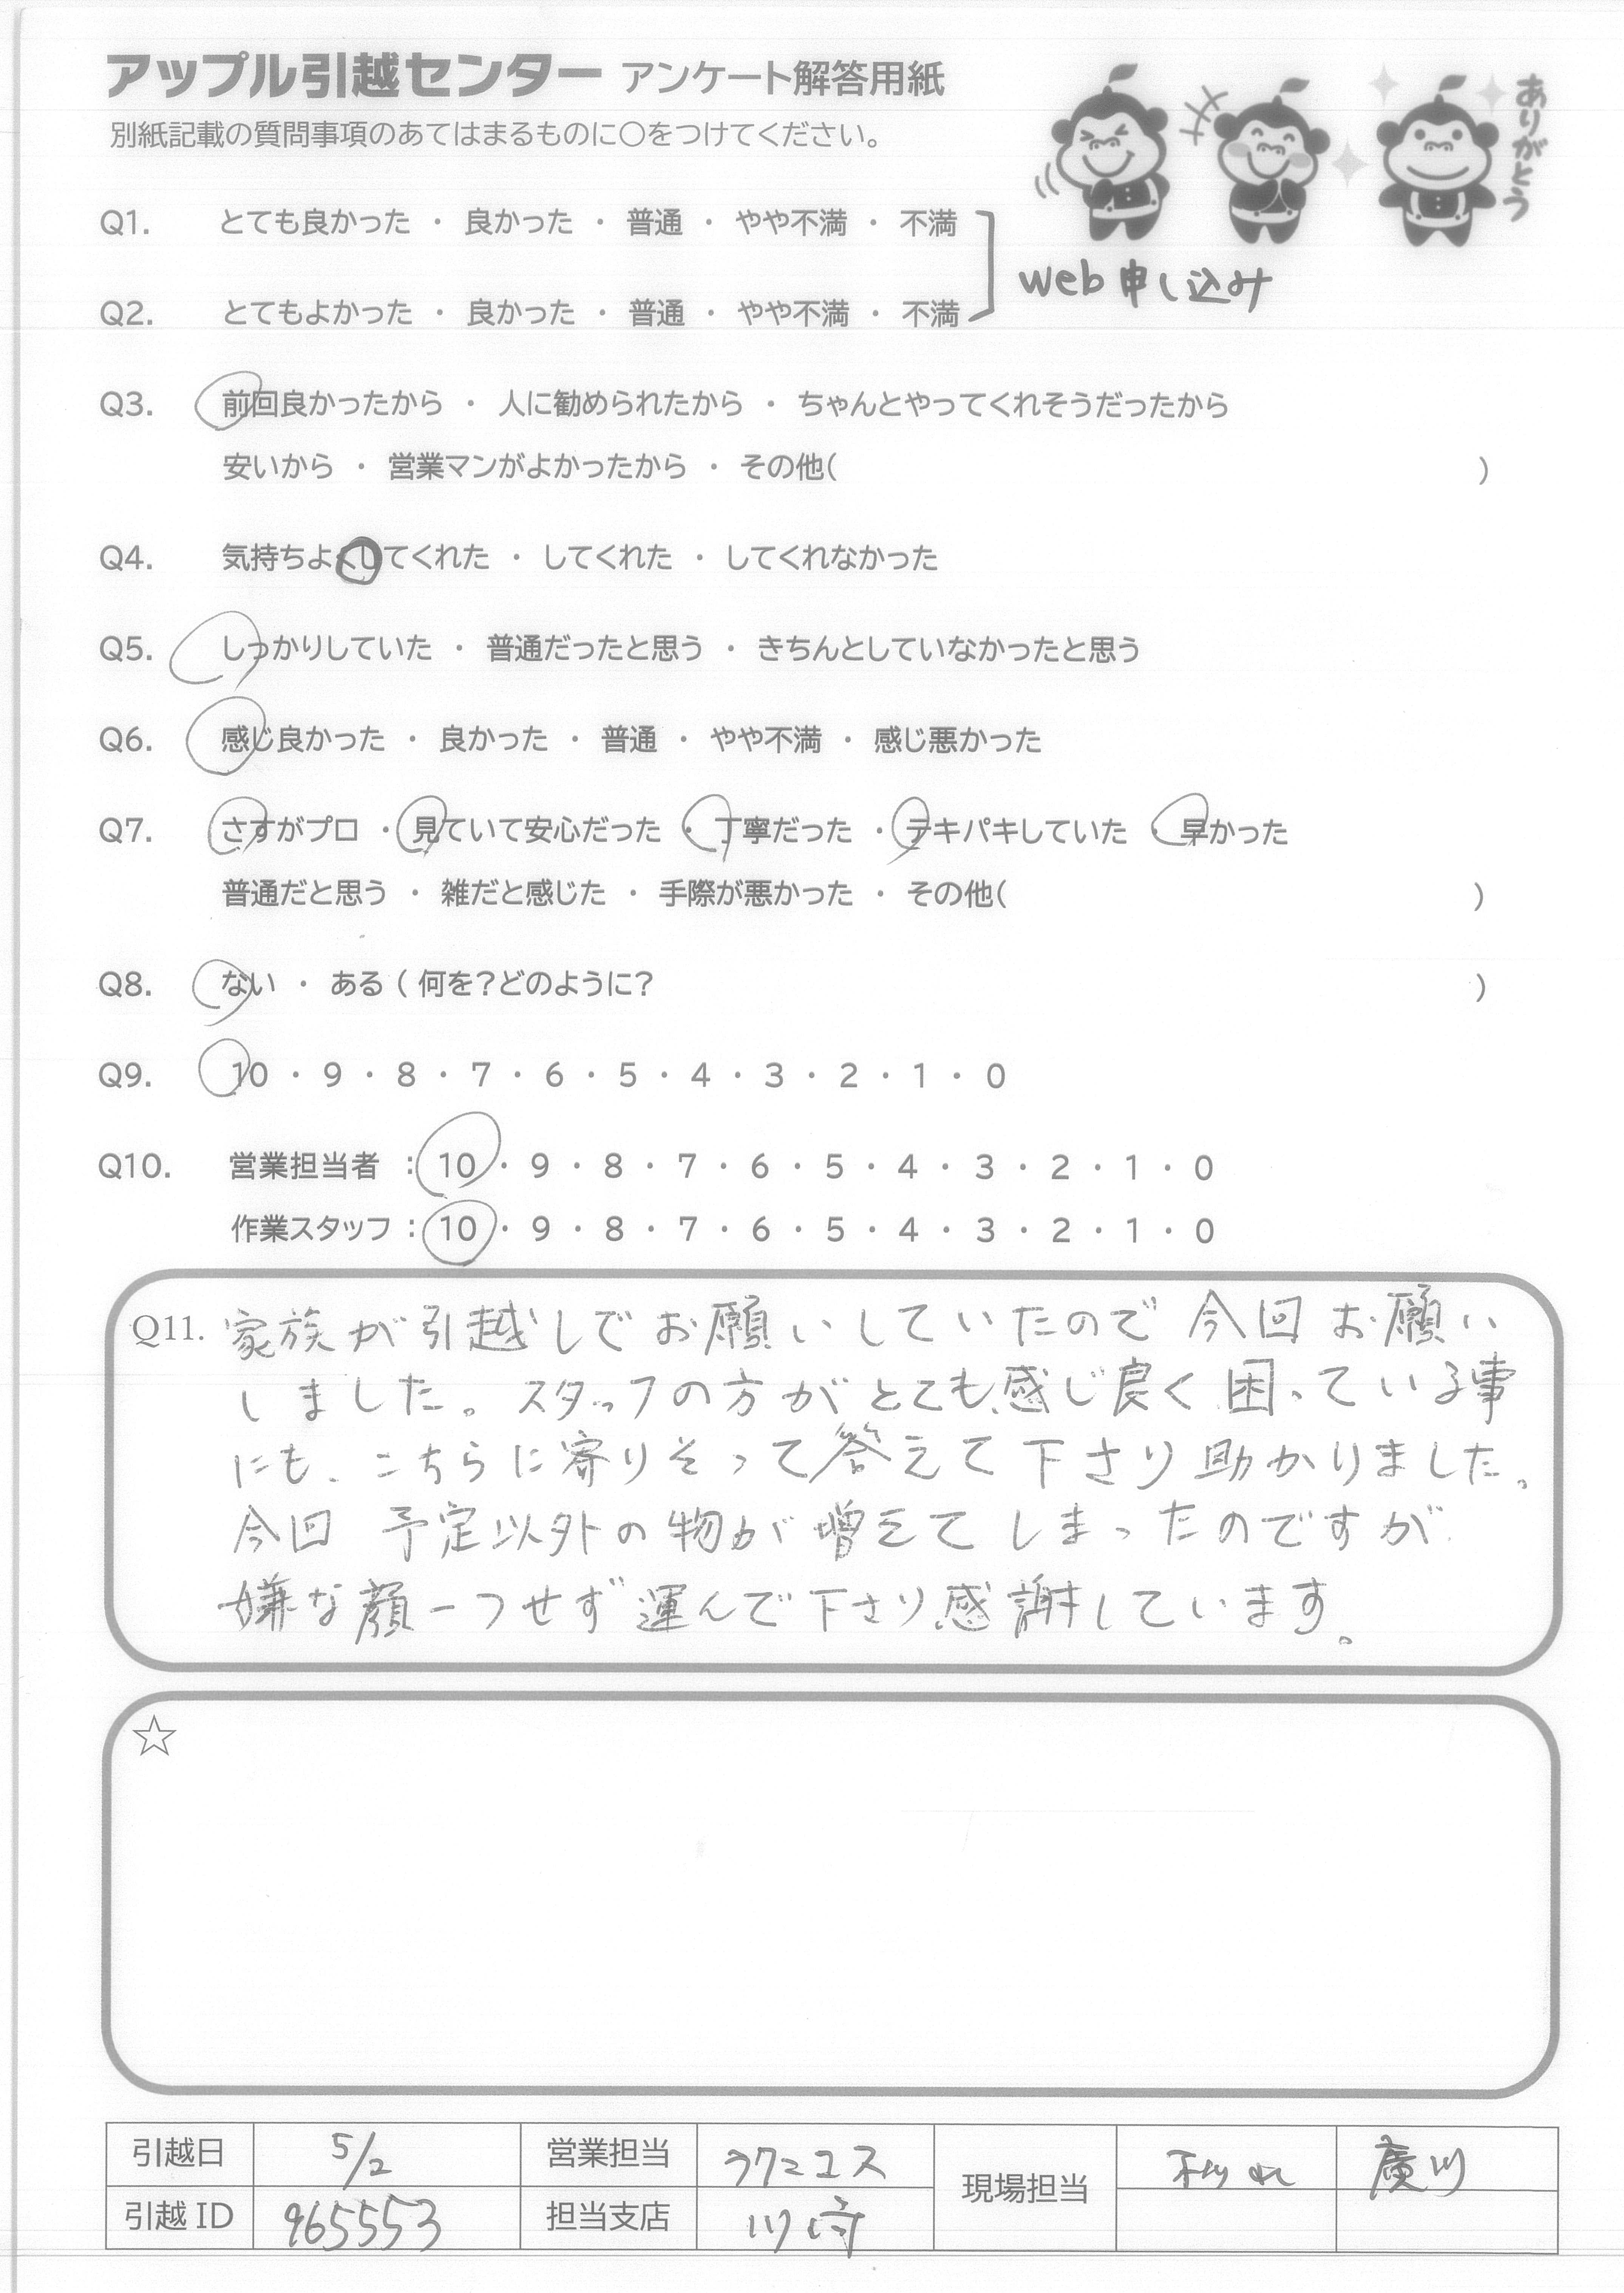 アップル引越センター アンケート解答用紙
ありがとう
別紙記載の質問事項のあてはまるものに○をつけてください。
Q1. とても良かった ・ 良かった ・ 普通 ・ やや不満 ・ 不満
web 申し込み
Q2. とてもよかった ・ 良かった ・ 普通 ・ やや不満 ・ 不満
Q3. 前回良かったから ・ 人に勧められたから ・ ちゃんとやってくれそうだったから
安いから ・ 営業マンがよかったから ・ その他( )
Q4. 気持ちよくしてくれた ・ してくれた ・ してくれなかった
Q5. しっかりしていた ・ 普通だったと思う ・ きちんとしていなかったと思う
Q6. 感じ良かった ・ 良かった ・ 普通 ・ やや不満 ・ 感じ悪かった
Q7. さすがプロ ・ 見ていて安心だった ・ 丁寧だった ・ テキパキしていた ・ 早かった
普通だと思う ・ 雑だと感じた ・ 手際が悪かった ・ その他( )
Q8. ない ・ ある ( 何を?どのように? )
Q9. 10 ・ 9 ・ 8 ・ 7 ・ 6 ・ 5 ・ 4 ・ 3 ・ 2 ・ 1 ・ 0
Q10. 営業担当者 : 10 ・ 9 ・ 8 ・ 7 ・ 6 ・ 5 ・ 4 ・ 3 ・ 2 ・ 1 ・ 0
作業スタッフ : 10 ・ 9 ・ 8 ・ 7 ・ 6 ・ 5 ・ 4 ・ 3 ・ 2 ・ 1 ・ 0
Q11. 家族が引越しでお願いしていたので今回お願い
しました。スタッフの方がとても感じ良く困っている事
にも、こちらに寄りそって答えて下さり助かりました。
今回 予定以外の物が増えてしまったのですが
嫌な顔一つせず運んで下さり感謝しています。
☆
引越日 5/2 営業担当 ラクニコス 現場担当 廣川
引越 ID 965553 担当支店 川崎